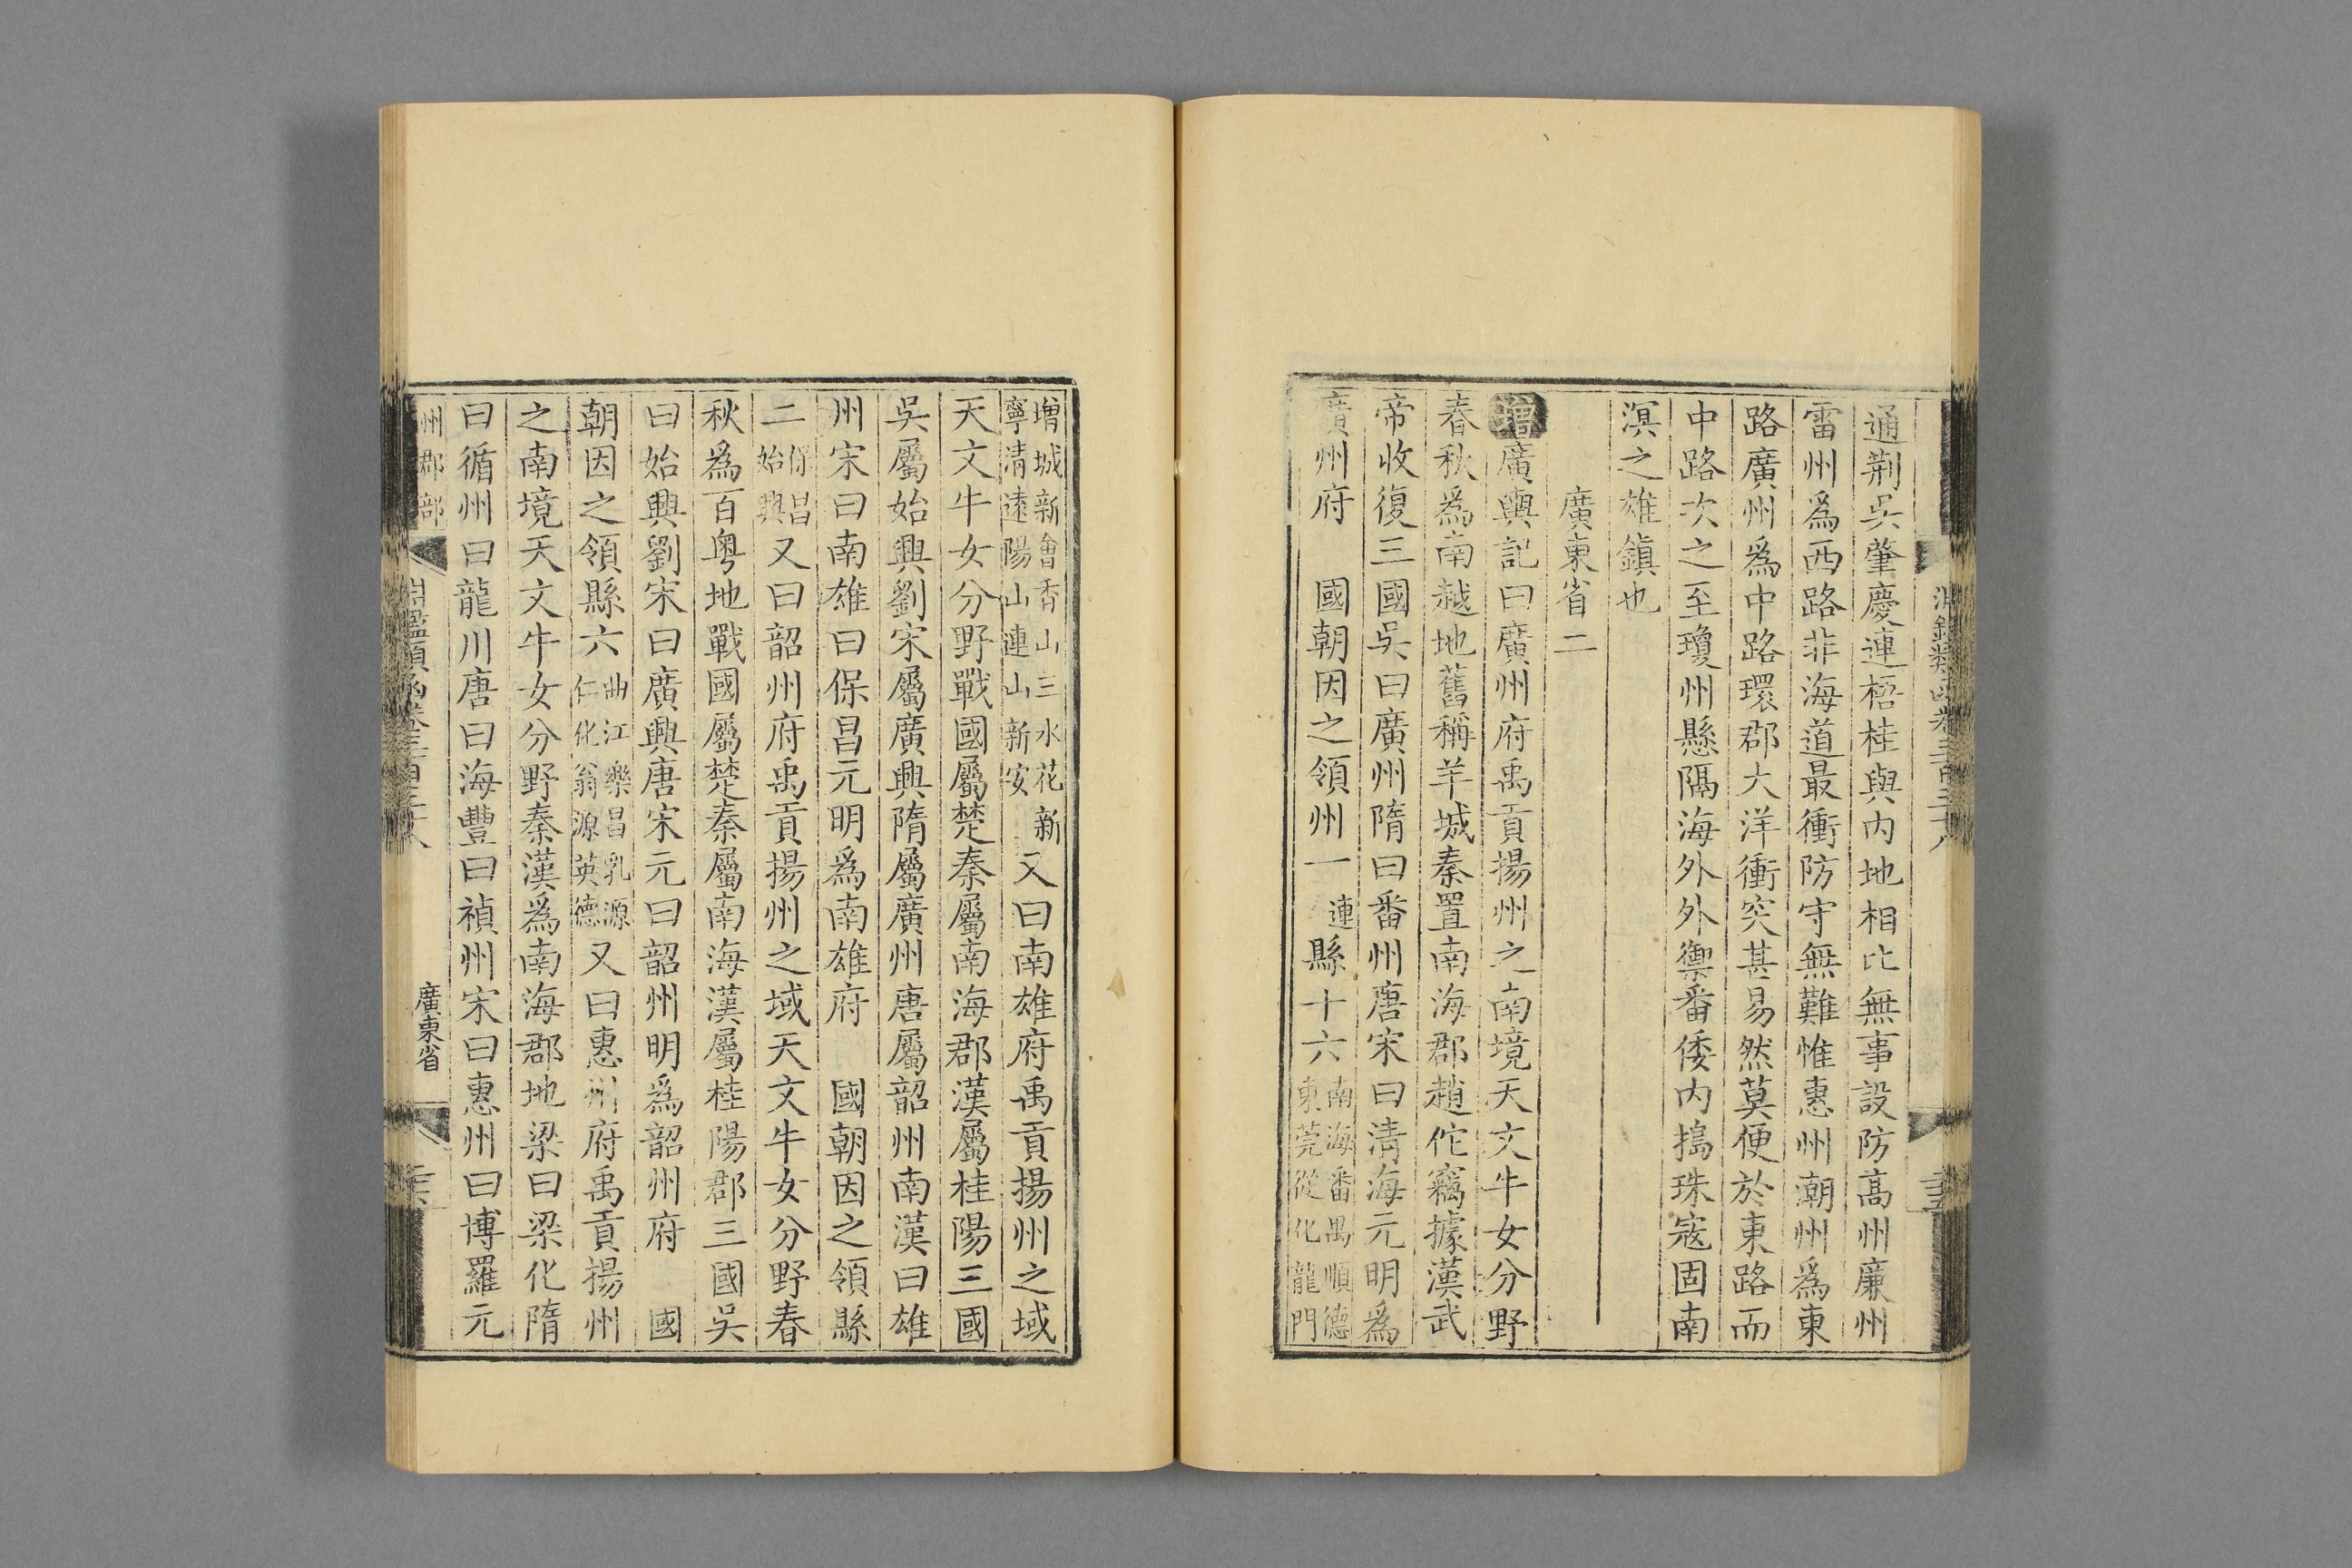 通荆吳肇慶連梧桂與内地相比無事設防髙州廉州
雷州爲西路非海道最衝防守無難惟惠州潮州爲東
路廣州爲中路環郡大洋衝突甚易然莫便於東路而
中路次之至瓊州懸隔海外外禦番倭内搗珠寇固南
溟之雄鎮也
廣東省二
增廣輿記曰廣州府禹貢揚州之南境天文牛女分野
春秋爲南越地舊稱羊城秦置南海郡趙佗竊據漢武
帝收復三國吳曰廣州隋曰番州唐宋曰清海元明爲
廣州府　國朝因之領州一連縣十六南海番禺順德東莞從化龍門
增城新會香山三水花新寧清遠陽山連山新安又曰南雄府禹貢揚州之域
天文牛女分野戰國屬楚秦屬南海郡漢屬桂陽三國
吳屬始興劉宋屬廣興隋屬廣州唐屬韶州南漢曰雄
州宋曰南雄曰保昌元明爲南雄府　國朝因之領縣
二保昌始興又曰韶州府禹貢揚州之域天文牛女分野春
秋爲百粤地戰國屬楚秦屬南海漢屬桂陽郡三國吳
曰始興劉宋曰廣興唐宋元曰韶州明爲韶州府　國
朝因之領縣六曲江樂昌乳源仁化翁源英德又曰惠州府禹貢揚州
之南境天文牛女分野秦漢爲南海郡地梁曰梁化隋
曰循州曰龍川唐曰海豐曰禎州宋曰惠州曰博羅元
州郡部
淵鑑類函卷三百三十八
廣東省